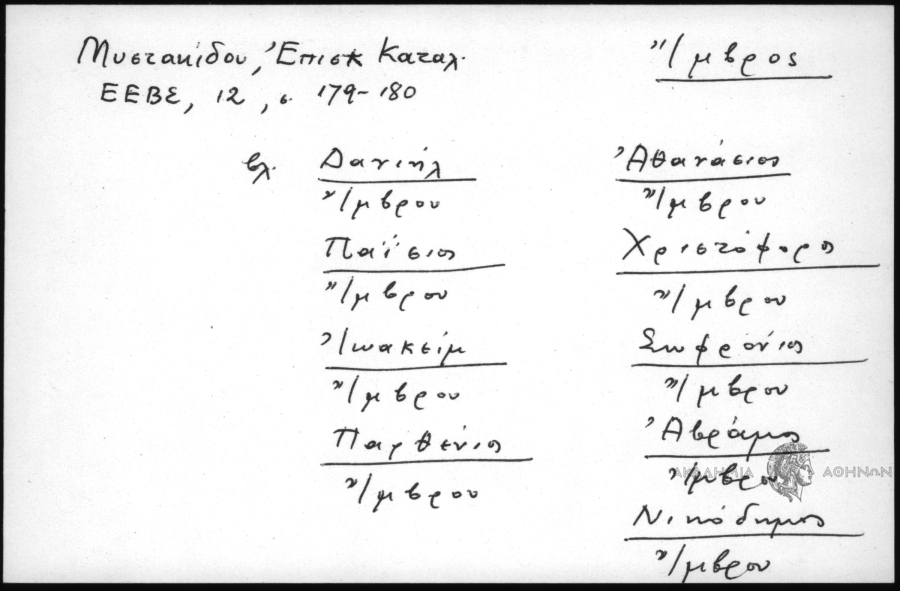 Μυστακίδου, Ἐπισκ Καταλ.
ΕΕΒΣ, 12, σ. 179-180
Ἴμβρος
βλ.
Δανιήλ
Ἴμβρου
Παΐσιος
Ἴμβρου
Ἰωακείμ
Ἴμβρου
Παρθένιος
Ἴμβρου
Ἀθανάσιος
Ἴμβρου
Χριστόφορος
Ἴμβρου
Σωφρόνιος
Ἴμβρου
Ἀβράμος
Ἴμβρου
Νικόδημος
Ἴμβρου
ΑΚΑΔΗΜΙΑ ΑΘΗΝΩΝ